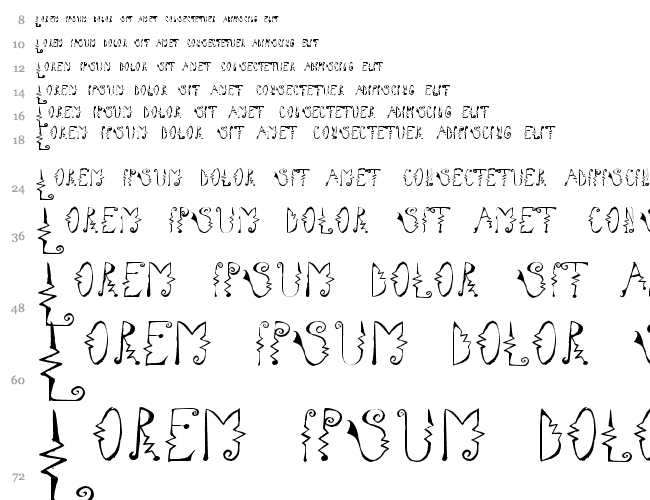 8 LOREM IPSUM DOLOR SIT AMET CONSECTETUER ADIPISCING ELIT
10 LOREM IPSUM DOLOR SIT AMET CONSECTETUER ADIPISCING ELIT
12 LOREM IPSUM DOLOR SIT AMET CONSECTETUER ADIPISCING ELIT
14 LOREM IPSUM DOLOR SIT AMET CONSECTETUER ADIPISCING ELIT
16 LOREM IPSUM DOLOR SIT AMET CONSECTETUER ADIPISCING ELIT
18 LOREM IPSUM DOLOR SIT AMET CONSECTETUER ADIPISCING ELIT
24 LOREM IPSUM DOLOR SIT AMET CONSECTETUER ADIPISCIN
36 LOREM IPSUM DOLOR SIT AMET CON
48 LOREM IPSUM DOLOR SIT A
60 LOREM IPSUM DOLOR
72 LOREM IPSUM DOLO